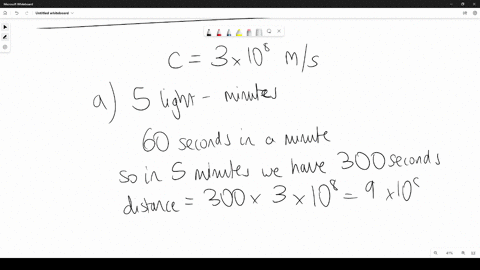 Microsoft Whiteboard
Untitled whiteboard
C = 3 × 10⁸ m/s
a) 5 light - minutes
60 seconds in a minute
so in 5 minutes we have 300 seconds
distance = 300 × 3 × 10⁸ = 9 × 10